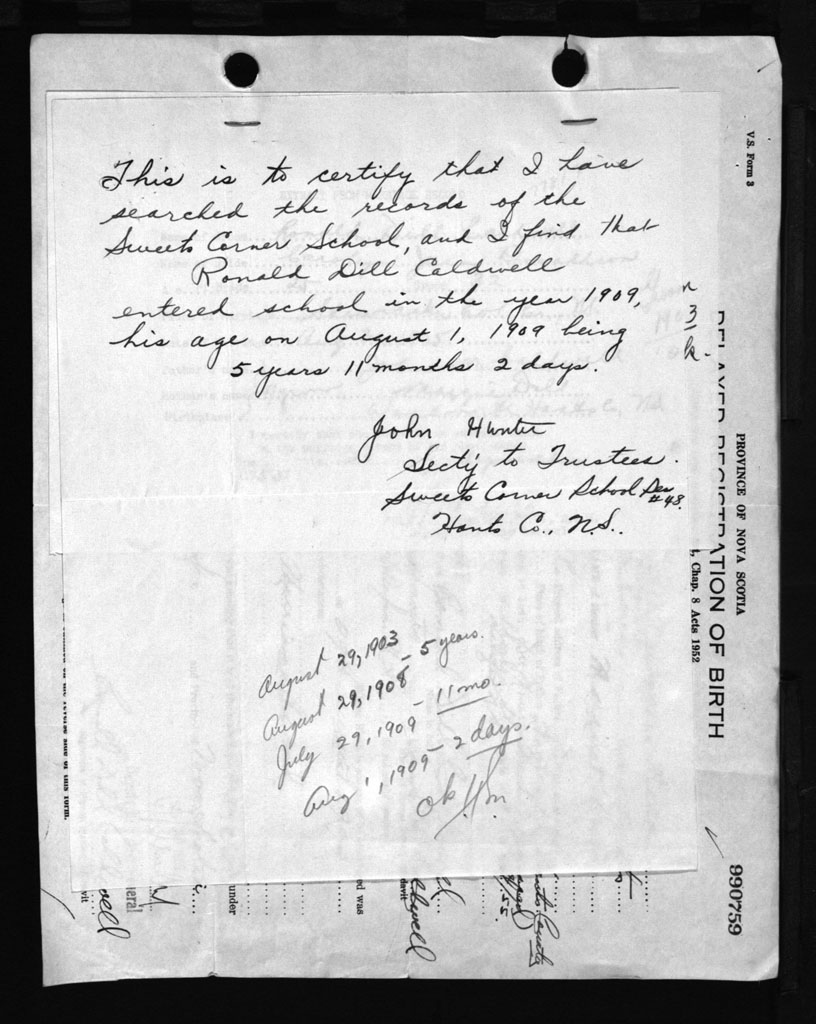 This is to certify that I have
searched the records of the
Sweets Corner School, and I find that
Ronald Dill Caldwell
entered school in the year 1909,
his age on August 1, 1909 being
5 years 11 months 2 days.
John Hunter
Sect'y to Trustees.
Sweets Corner School Sec
#48.
Hants Co., N.S..
August 29, 1903
August 29, 1908 – 5 years.
July 29, 1909 – 11 mo.
Aug 1, 1909 – 2 days.
ok
V.S. Form 3
PROVINCE OF NOVA SCOTIA
DELAYED REGISTRATION OF BIRTH
1, Chap. 8 Acts 1952
990759
of this form.
under
ed was
davit
eral